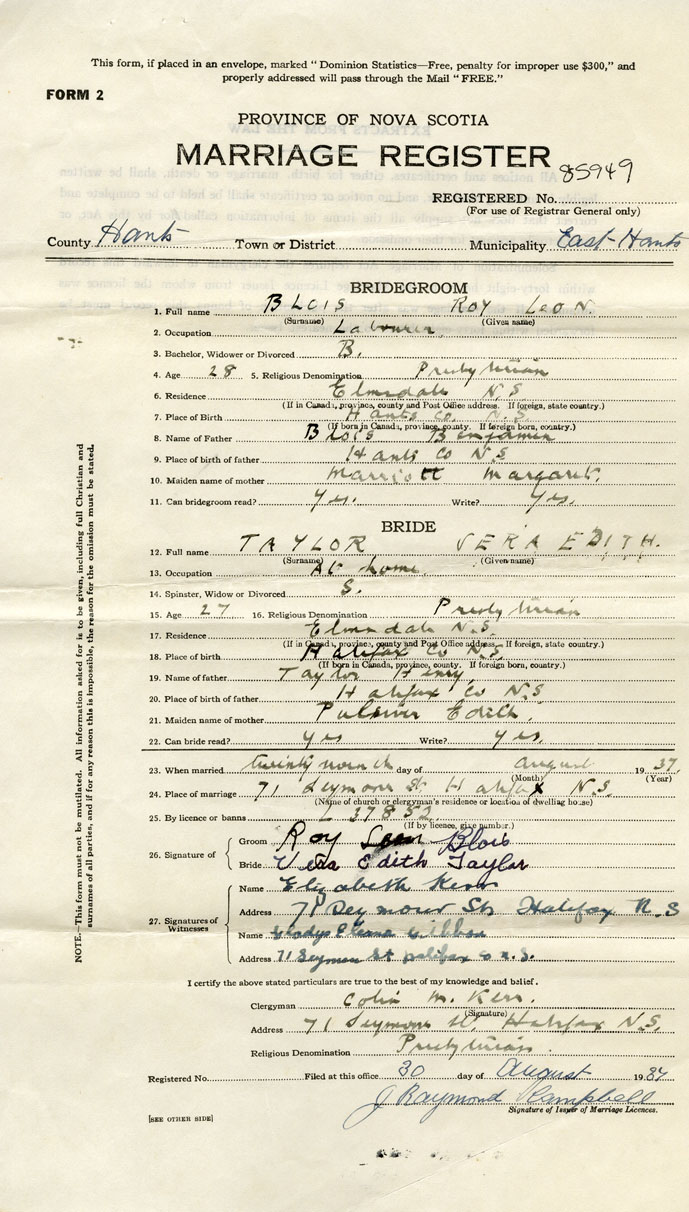 This form, if placed in an envelope, marked "Dominion Statistics—Free, penalty for improper use $300," and
properly addressed will pass through the Mail "FREE."
FORM 2
PROVINCE OF NOVA SCOTIA
MARRIAGE REGISTER
85949
REGISTERED No.
(For use of Registrar General only)
County Hants Town or District Municipality East Hants
BRIDEGROOM
1. Full name BLOIS ROY LEON.
(Surname) (Given name)
2. Occupation Labourer
3. Bachelor, Widower or Divorced B.
4. Age 28 5. Religious Denomination Presbyterian
6. Residence Elmsdale N S
(If in Canada, province, county and Post Office address. If foreign, state country.)
7. Place of Birth Hants Co. N.S.
(If born in Canada, province, county. If foreign born, country.)
8. Name of Father Blois Benjamin
9. Place of birth of father Hants Co N S
10. Maiden name of mother Marriott Margaret.
11. Can bridegroom read? Yes. Write? Yes.
BRIDE
12. Full name TAYLOR VERA EDITH.
(Surname) (Given name)
13. Occupation At home.
14. Spinster, Widow or Divorced S.
15. Age 27 16. Religious Denomination Presbyterian
17. Residence Elmsdale N.S.
(If in Canada, province, county and Post Office address. If foreign, state country.)
18. Place of birth Halifax Co N.S.
(If born in Canada, province, county. If foreign born, country.)
19. Name of father Taylor Henry
20. Place of birth of father Halifax Co N.S
21. Maiden name of mother Pulsiver Edith.
22. Can bride read? yes Write? yes.
23. When married day of August 1937.
(Month) (Year)
24. Place of marriage 71 Seymour St Halifax N.S.
(Name of church or clergyman's residence or location of dwelling house)
25. By licence or banns L 37852.
(If by licence, give number.)
26. Signature of
Groom Roy Leon Blois
Bride Vera Edith Taylor
27. Signatures of Witnesses
Name Elizabeth Kerr
Address 71 Seymour St. Halifax N.S
Name Gladys
Address 71 Seymour St Halifax N.S.
I certify the above stated particulars are true to the best of my knowledge and belief.
Clergyman Colin M. Kerr.
(Signature)
Address 71 Seymour St. Halifax N.S.
Religious Denomination Presbyterian.
Registered No. Filed at this office 30 day of August 1937
J Raymond Campbell
Signature of Issuer of Marriage Licences.
[SEE OTHER SIDE]
NOTE.—This form must not be mutilated. All information asked for is to be given, including full Christian and
surnames of all parties, and if for any reason this is impossible, the reason for the omission must be stated.